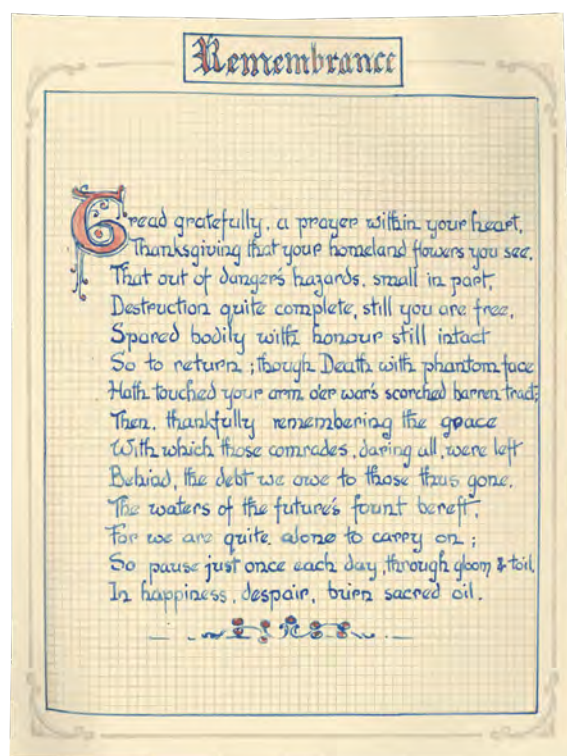 Remembrance
Tread gratefully, a prayer within your heart,
Thanksgiving that your homeland flowers you see,
That out of danger's hazards, small in part,
Destruction quite complete, still you are free,
Spared bodily with honour still intact
So to return ; though Death with phantom face
Hath touched your arm o'er war's scorched barren tract;
Then, thankfully remembering the grace
With which those comrades, daring all, were left
Behind, the debt we owe to those thus gone.
The waters of the future's fount bereft,
For we are quite alone to carry on ;
So pause just once each day, through gloom & toil,
In happiness, despair, burn sacred oil.